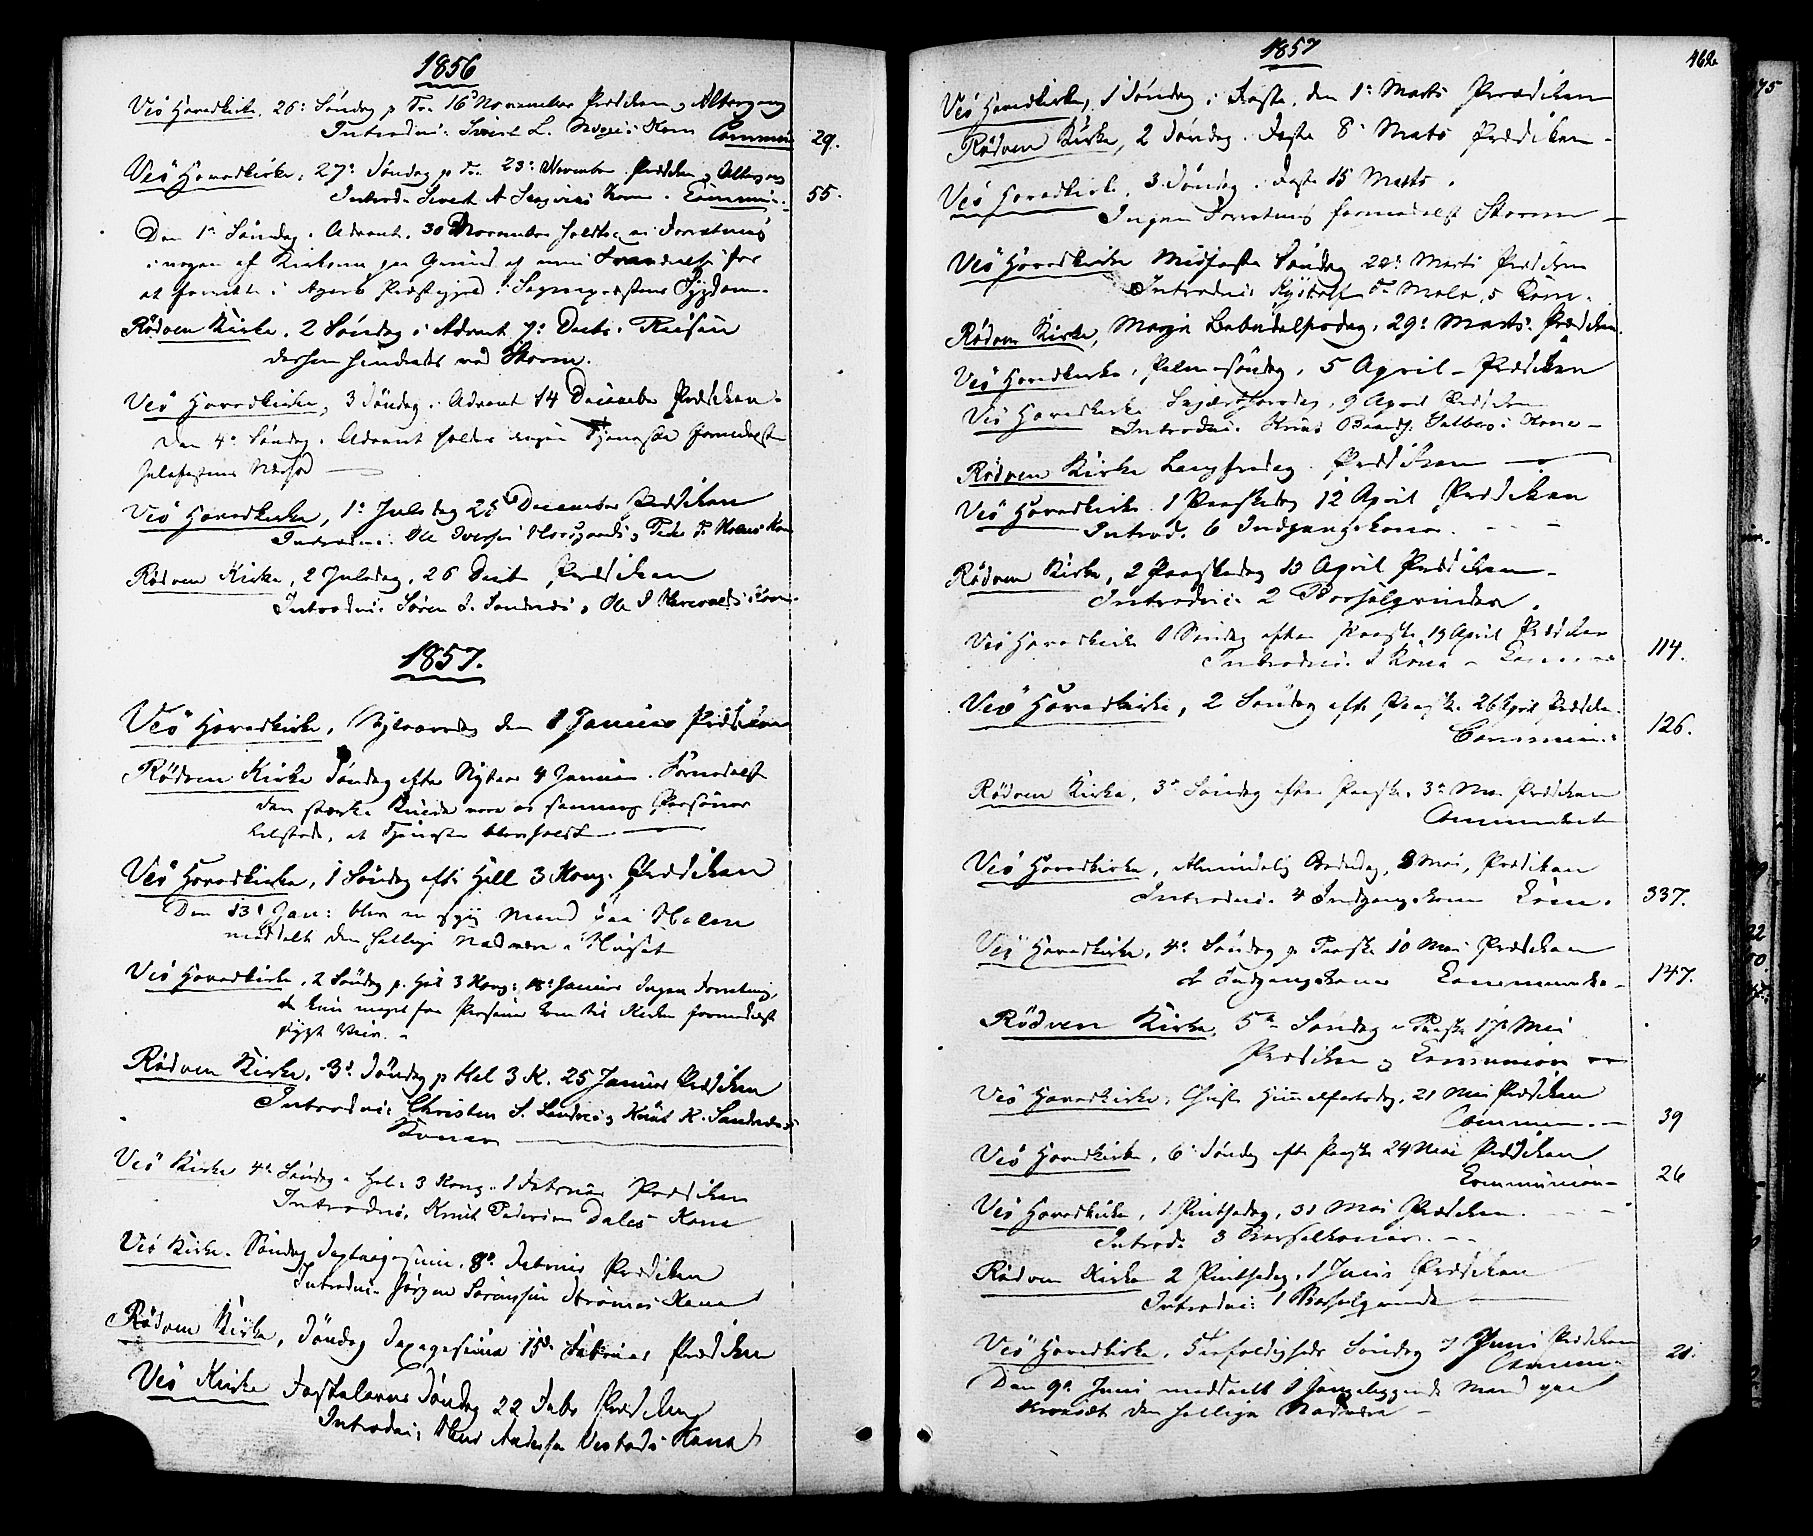 1856
Veö Hovedkirke, 26: Søndag p Tr. 16 November Prædiken & Altergang
Introduc: Sivert L. Kone Commun 29.
Veö Hovedkirke, 27: Søndag p Tr. 23: November Prædiken & Altergang
Introd. Sivert A Kone. Commun: 55.
Den 1ste Søndag i Advent, 30 November holdtes ei Forretning
i nogen af Kirkerne paa Grund af min for
at forrette i Agers Præstegjeld i Sognepræstens Sygdom.
Rödven Kirke, 2 Søndag i Advent 7: Decbr. Reisen
dertil hindredes ved Storm.
Veö Hovedkirke, 3 Søndag i Advent 14 December Prædiken.
Den 4: Søndag i Advent holdes ingen Tjeneste formedelst
Julefestens Nærhed
Veö Hovedkirke, 1: Juledag 25 December Prædiken
Introduc: Ole Iversen & Peder P. Kone
Rödven Kirke, 2 Juledag, 26 Decbr Prædiken
Introduc: Søren I. & Ole I Kone.
1857.
Veö Hovedkirke, Nytaarsdag den 1 Januar Prædiken
Rödven Kirke Søndag efter Nytaar 4 Januar. Formedelst
den stærke Kulde vare ei saamange Personer
tilstede, at Tjeneste blev holdt
Veö Hovedkirke, 1 Søndag eft: Hell 3 Kong. Prædiken
Den 13: Jan: blev en syg Mand paa Holen
meddelt den hellige Nadvere i Huset
Veö Hovedkirke, 2 Søndag p. Hel 3 Kong: 18: Januar Ingen Forretning,
da kun meget faa Personer kom til Kirke formedelst
stygt Veir.
Rödven Kirke, 3: Søndag p Hel 3 K. 25 Januar Prædiken
Introduc: Christen S. & Knut K. Sandnes
Koner
Veö Kirke 4: Søndag p Hel: 3 Kong. 1 Februar Prædiken
Introduc. Knut Pedersen Dales Kone
Veö Kirke. Søndag Septuagesima. 8: Februar Prædiken
Introduc. Jørgen Sørensen Kone
Rödven Kirke, Søndag Sexagesima 15de Februar Prædiken
Veö Kirke Fastelavns Søndag 22 Febr Prædiken
Introduc: Andersen Kone
1857
462
Veö Hovedkirke, 1 Søndag i Faste, den 1: Marts Prædiken
Rödven Kirke, 2 Søndag i Faste 8: Marts Prædiken
Veö Hovedkirke, 3 Søndag i Faste 15 Marts.
Ingen Forretning formedelst Storm
Veö Hovedkirke Midfaste Søndag 22: Marts Prædiken
Introduc: 5 Kon.
Rödven Kirke, Mariæ Bebudelsesdag, 29: Marts. Prædiken.
Veö Hovedkirke, Palmesøndag, 5 April - Prædiken
Veö Hovedkirke Skjærthorsdag, 9 April Prædiken
Introduc: Knud Kone
Rödven Kirke Langfredag. Prædiken
Veö Hovedkirke. 1 Paaskedag 12 April Prædiken
Introd. 6 Indgangskoner.
Rödven Kirke, 2 Paaskedag 13 April Prædiken
Introduc: 2 Barselqvinder.
Veö Hovedkirke 1 Søndag efter Paaske 19 April Prædiken
Introduc. 1 Kone - Commun 114.
Veö Hovedkirke, 2 Søndag eft Paaske 26 April Prædiken.
Commun: 126.
Rödven Kirke, 3: Søndag efter Paaske. 3: Mai Prædiken
Veö Hovedkirke, Almindelig Bededag, 8 Mai, Prædiken
Introduc. 4 Indgangskoner Com. 337.
Veö Hovedkirke, 4: Søndag p Paaske 10 Mai Prædiken
Indgangskoner 147.
Rödven Kirke, 5te Søndag p Paaske 17 Mai
Prædiken & Communion
Veö Hovedkirke, Christi Himmelfartsdag, 21 Mai Prædiken
Commun. 39
Veö Hovedkirke, 6 Søndag eft Paaske 24 Mai Prædiken
Communion 26
Veö Hovedkirke, 1 Pintsedag, 31 Mai Prædiken.
Introd. 3 Barselkoner.
Rödven Kirke 2 Pintsedag, 1 Juni Prædiken
Introduc: 1 Barselqvinde
Veö Hovedkirke, Trefoldigheds Søndag 7 Juni Prædiken
Commun. 21.
Den 9: Juni meddeelt 1 Sengeliggende Mand paa
den hellige Nadvere